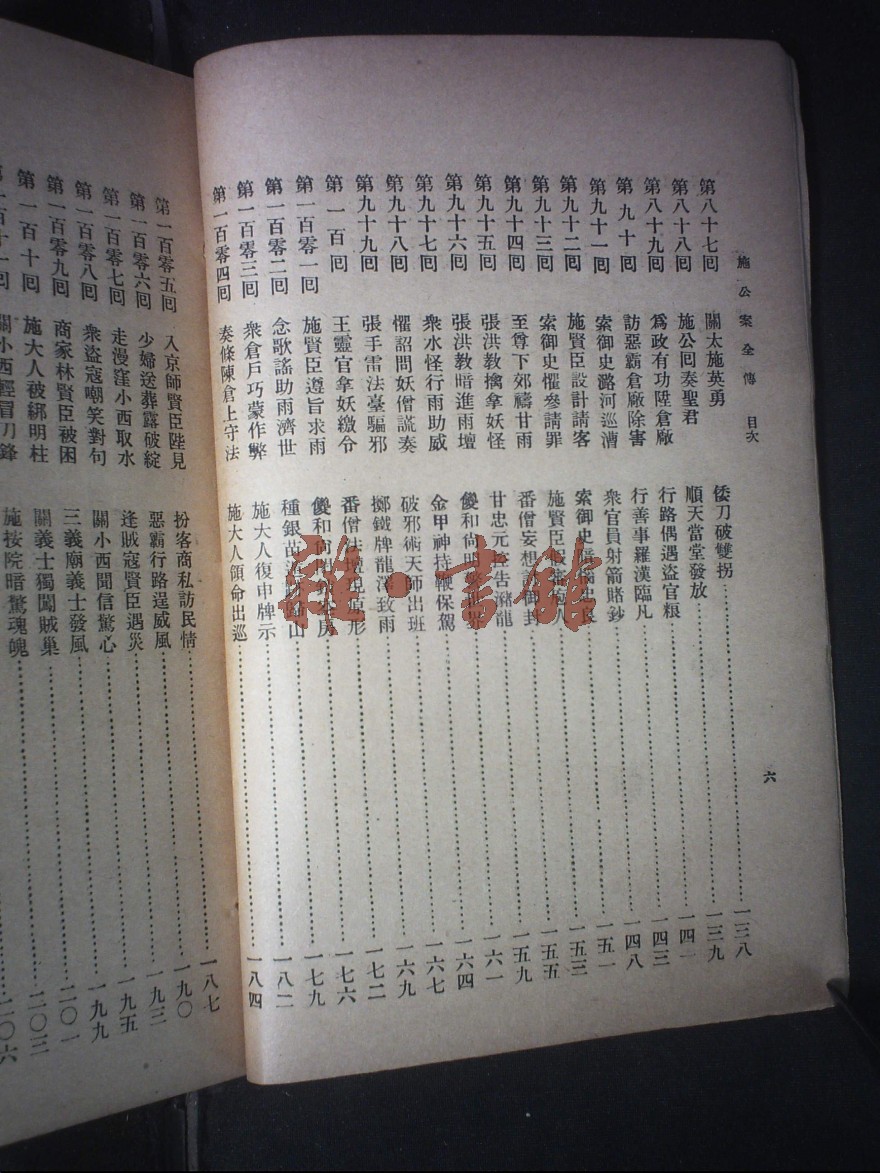 施公案全傳 目次
六
第八十七囘 關太施英勇 倭刀破雙拐 一三八
第八十八囘 施公囘奏聖君 順天當堂發放 一三九
第八十九囘 爲政有功陞倉廠 行路偶遇盜官糧 一四一
第九十囘 訪惡霸倉廠除害 行善事羅漢臨凡 一四三
第九十一囘 索御史潞河巡漕 衆官員射箭賭鈔 一四八
第九十二囘 施賢臣設計請客 索御史 一五一
第九十三囘 索御史懼參請罪 施賢臣 一五三
第九十四囘 至尊下郊禱甘雨 番僧妄想 御封 一五五
第九十五囘 張洪教擒拿妖怪 甘忠元 告潴龍 一五九
第九十六囘 張洪教暗進雨壇 儍和尚 一六一
第九十七囘 衆水怪行雨助威 金甲神持鞭保駕 一六四
第九十八囘 懼詔問妖僧謊奏 破邪術天師出班 一六七
第九十九囘 張手雷法臺驅邪 擲鐵牌龍潭致雨 一六九
第一百囘 王靈官拿妖繳令 番僧法 原形 一七二
第一百零一囘 施賢臣遵旨求雨 儍和尚 一七六
第一百零二囘 念歌謠助雨濟世 種銀苗 山 一七九
第一百零三囘 衆倉戶巧蒙作弊 施大人復申牌示 一八二
第一百零四囘 奏條陳倉上守法 施大人領命出巡 一八四
第一百零五囘 入京師賢臣陛見 扮客商私訪民情 一八七
第一百零六囘 少婦送葬露破綻 惡霸行路逞威風 一九〇
第一百零七囘 走漫窪小西取水 逢賊寇賢臣遇災 一九三
第一百零八囘 衆盜寇嘲笑對句 關小西聞信驚心 一九五
第一百零九囘 商家林賢臣被困 三義廟義士發風 一九九
第一百十囘 施大人被綁明柱 關義士獨闖賊巢 二〇一
第一百十一囘 關小西輕冒刀鋒 施按院暗驚魂魄 二〇三
二〇六
雅·書館